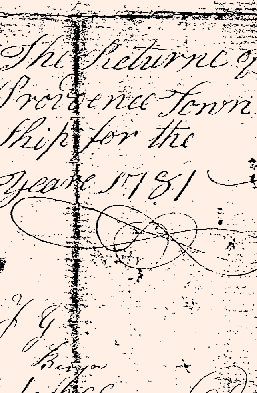 The Returne of
Providence Town
Ship for the
Yeare 1781